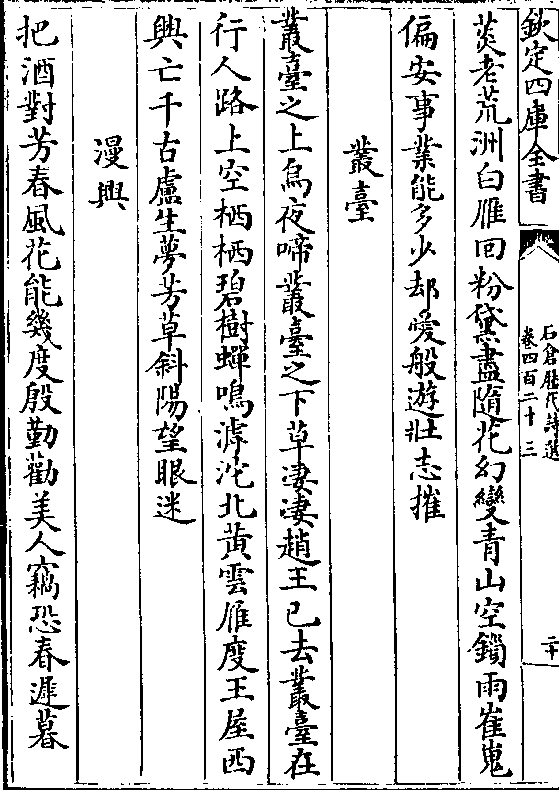 欽定四庫全書
石倉歴代詩選
卷四百二十三
二十
菼老荒洲白雁回粉黛盡隨花幻變青山空鎻雨崔嵬
偏安事業能多少却愛般遊壯志摧
叢臺
叢臺之上烏夜啼叢臺之下草淒淒趙王已去叢臺在
行人路上空栖栖碧樹蟬鳴滹沱北黄雲雁度王屋西
興亡千古盧生夢芳草斜陽望眼迷
漫興
把酒對芳春風花能幾度殷勤勸美人竊恐春遲暮